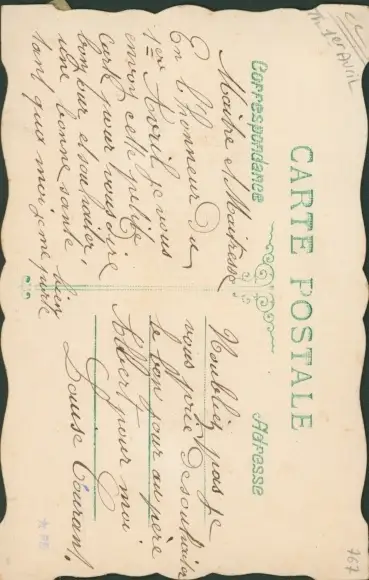 CARTE POSTALE
Correspondance
Adresse
Maitre et Maitresse
En l'honneur du
1er Avril je vous
envoy cette petite
carte pour vous dire
bonjour et souhaiter,
une bonne sante
tant qua moi je me porte
bien
N'oubliez pas je
vous prie De souhaiter
le bon jour au père
Albert pour moi
Louise Courant.
1er Avril
767